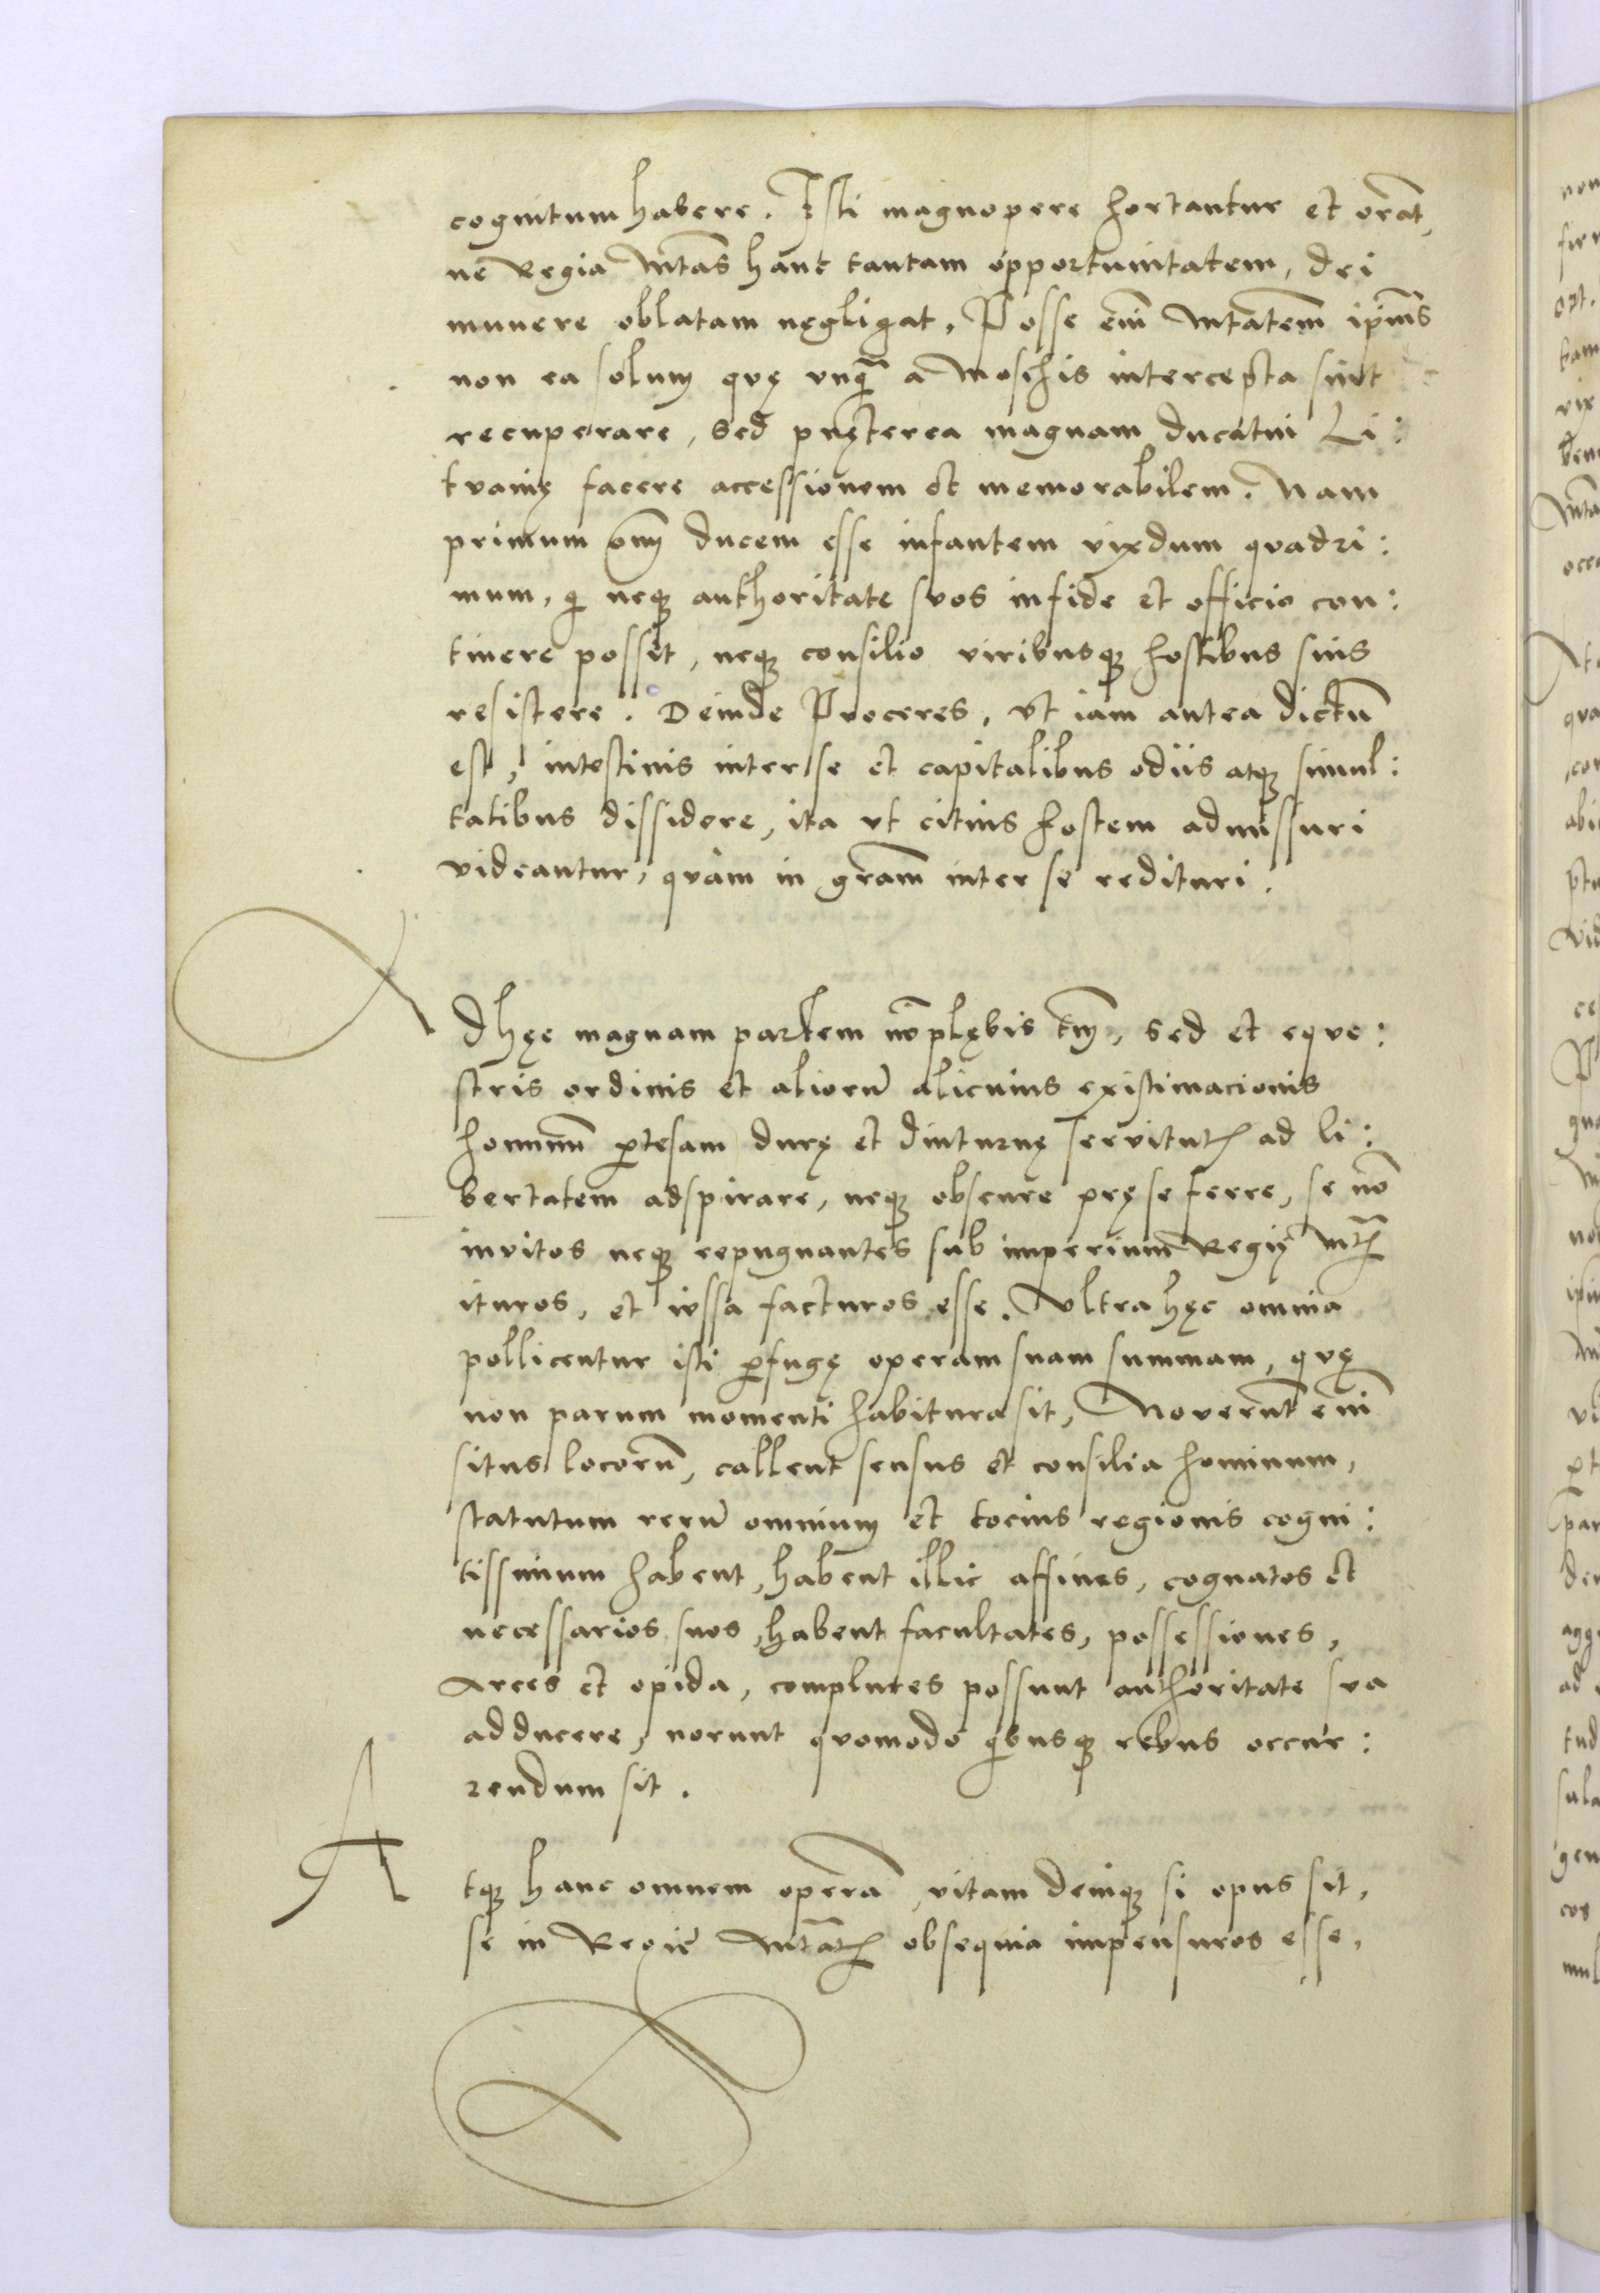 cognitum habere. Isti magnopere hortantur et orāt,
ne Regia Mtas hanc tantam opportunitatem, dei
munere oblatam nęgligat, Posse enī Mtatem ipīus
non ea solum quę vnq̄ a Moschis intercepta sunt
recuperare, sed pręterea magnam ducatui Li:
tvanię facere accessionem et memorabilem. Nam
primum om̄ ducem esse infantem vixdum quadri:
mum, qi neq; authoritate suos in fide et officio con:
tinere possit, neq; consilio viribusq; hostibus suis
resistere. Deinde Proceres, vt iam antea dictū
est, intestinis inter se et capitalibus odiis atq; simul:
tatibus dissidere, ita vt citius hostem admissuri
videantur, quàm in grām inter se redituri.
Ad hęc magnam partem nō plębis tm̄, sed et eque:
stris ordinis et aliorū alicuius existimacionis
hominū ptesam durę et diuturnę servitutȩ ad li:
bertatem adspirare, neq; obscure prę se ferre, se nō
invitos neq; repugnantes sub imperium Regię Mtȩ
ituros, et iussa facturos esse. Vltra hęc omnia
pollicentur isti pfugę operam suam summam, quę
non parum momenti habitura sit, Noverūt enī
situs locorū, callent sensus et consilia hominum,
statutum rerū omnium et tocius regionis cogni:
tissimum habent, habent illic affines, cognatos et
necessarios suos, habent facultates, possessiones,
Arces et opida, complures possunt authoritate sua
adducere, norunt quomodo qibusq; rebus occur:
rendum sit.
Atq; hanc omnem operā, vitam deniq; si opus sit,
se in Regię Mtatȩ obsequia impensuros esse,